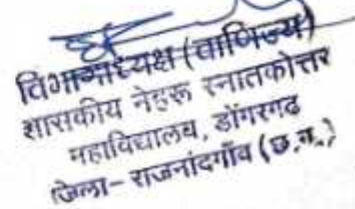 विभागाध्यक्ष (वाणिज्य)
शासकीय नेहरू स्नातकोत्तर
महाविद्यालय, डोंगरगढ
जिला- राजनांदगाँव (छ.ग.)